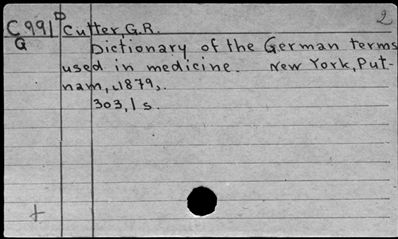 2
C991 D Cutter, G.R.
G Dictionary of the German terms
used in medicine. New York, Put-
nam, 1879.
303, 1 s.
+